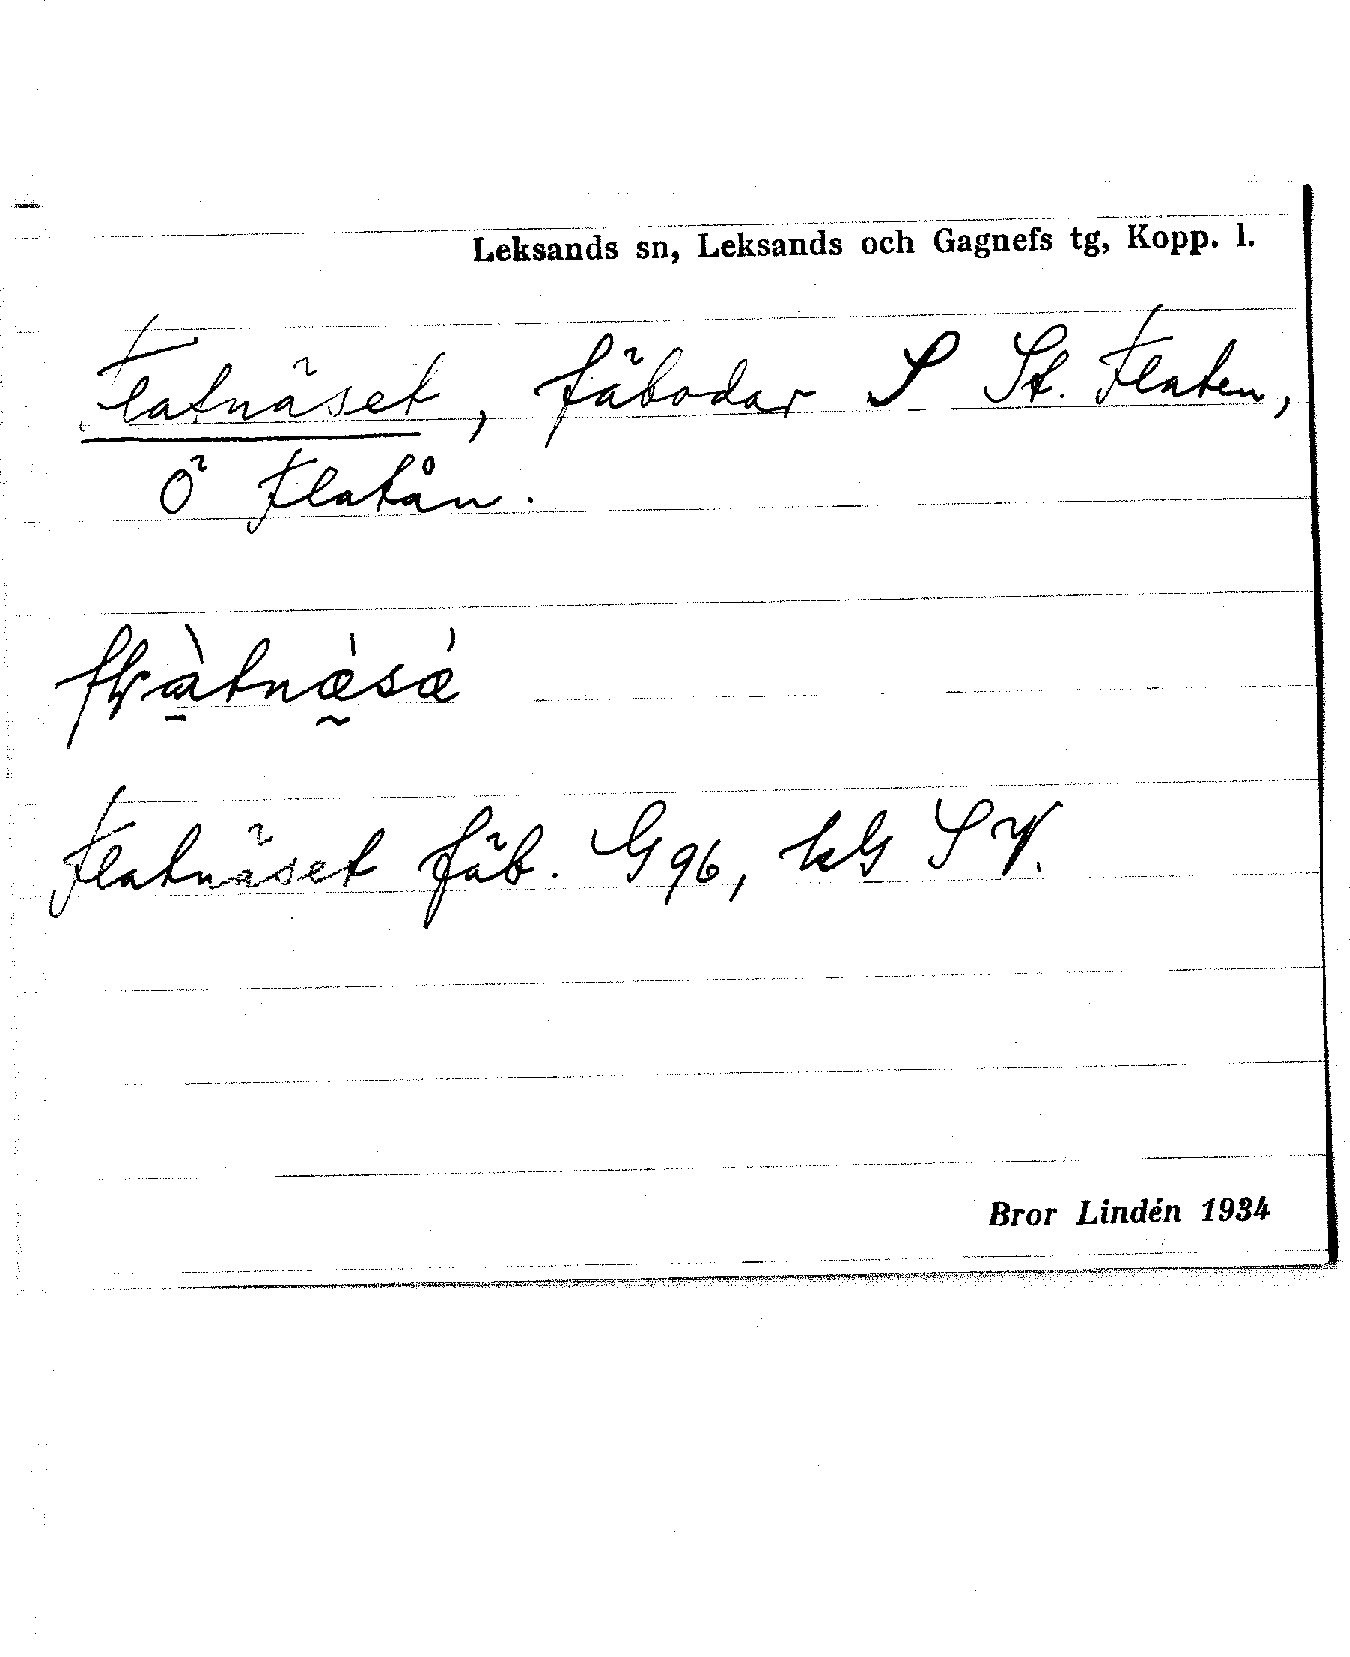 Leksands sn, Leksands och Gagnefs tg, Kopp. l.
Flatnäset, fäbodar S St. Flaten,
Ö Flatån.
Flatnäset fäb. G 96, kG SV.
Bror Lindén 1934